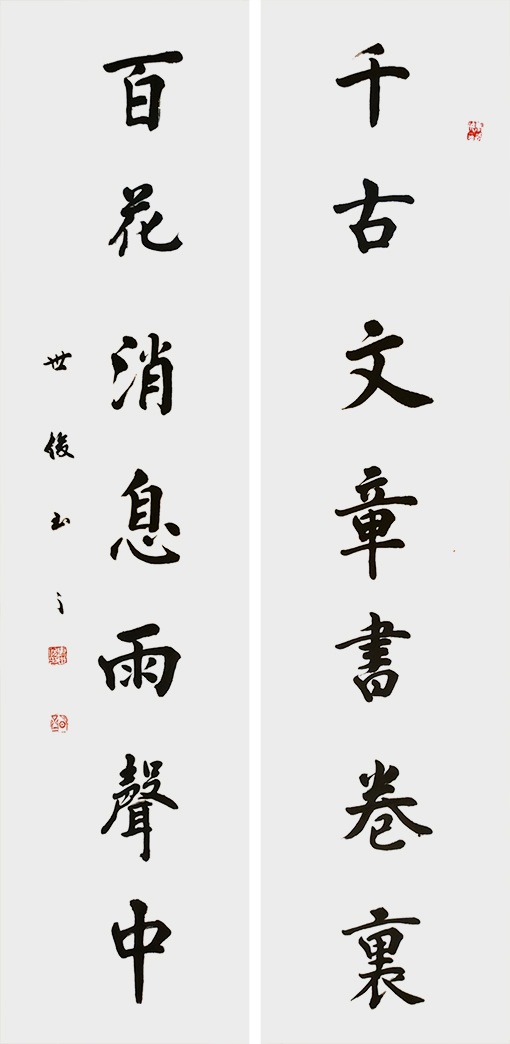 千古文章書卷裏
百花消息雨聲中
世俊书之